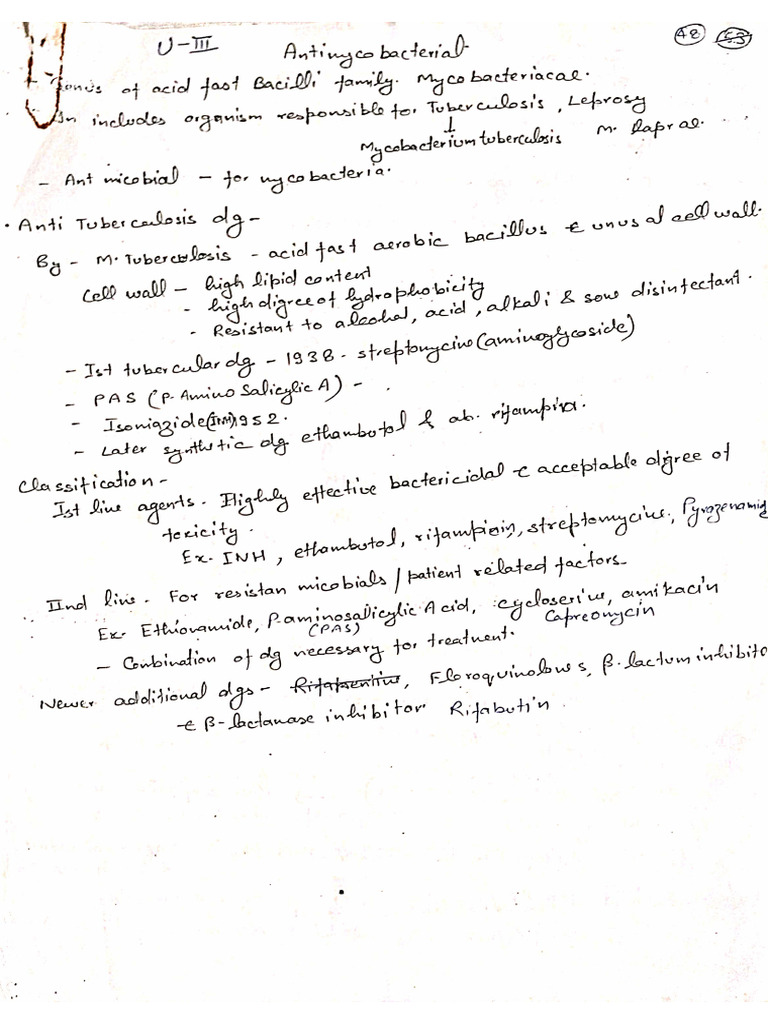 U-III Antimycobacterial 48 53
- Genus of acid fast Bacilli family. Mycobacteriacae.
In includes organism responsible for Tuberculosis, Leprosy
↓
Mycobacterium tuberculosis M. Laprae.
- Ant micobial - for mycobacteria.
• Anti Tuberculosis dg -
By - M. Tuberculosis - acid fast aerobic bacillus c unusal cell wall.
Cell wall - high lipid content
- high digree of hydrophobicity
- Resistant to alcohal, acid, alkali & sow disinfectant.
- Ist tubercular dg - 1938. streptomycine (aminoglycoside)
- PAS (P. Amino Salicylic A) -
- Isoniazide (INH) 1952.
- Later synthetic dg ethambutol & ab. rifampin.
Classification -
Ist line agents. Highly effective bactericidal c acceptable digree of
toxicity.
Ex. INH, ethambutol, rifampicin, streptomycine, Pyrozenamid
IInd line. For resistan micobials / patient related factors.
Ex. Ethionamide, P-aminosalicylic Acid, cycloserine, amikacin
(PAS) Capreomycin
- Combination of dg necessary for treatment.
Newer additional dgs - Rifapentine, Floroquinolones, β-lactum inhibito
c β-lactanase inhibitor. Rifabutin